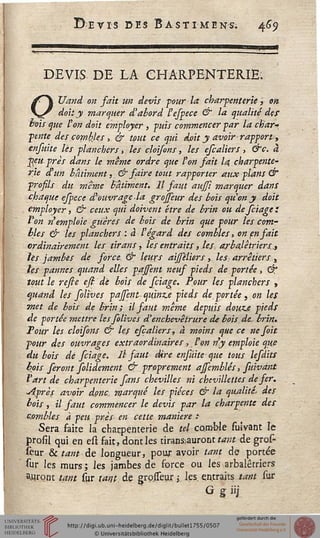 DEVIS DES BASTIMENS. 469
DEVIS DE LA CHARPENTERIE.
QUand on fait un devis pour la charpenterie, on
doit y marquer d'abord l'espece & la qualité des
bois que l'on doit employer, puis commencer par la char-
pente des combles, & tout ce qui doit y avoir rapport,
ensuite les planchers, les cloisons, les escaliers, &c. à
peu près dans le même ordre que l'on fait la charpente-
rie d'un bâtiment, & faire tout rapporter aux plans &
profils du même bâtiment. Il faut aussi marquer dans
chaque espece d'ouvrage la grosseur des bois qu'on y doit
employer, & ceux qui doivent être de brin ou de sciage :
l'on n'emploie guéres de bois de brin que pour les com-
bles & les planchers : à l'égard des combles, on en fait
ordinairement les tirans, les entraits, les arbalétriers,
les jambes de force & leurs aisseliers, les arrêtiers,
les pannes quand elles passent neuf pieds de portée, &
tout le reste est de bois de sciage. Pour les planchers,
quand les solives passent quinze pieds de portée, on les
met de bois de brin ; il faut même depuis douze pieds
de portée mettre les solives d'enchevêtrure de bois de brin.
Pour les cloisons & les escaliers, à moins que ce ne soit
pour des ouvrages extraordinaires, l'on n'y emploie que
du bois de sciage. Il faut dire ensuite que tous lesdits
bois seront solidement & proprement assemblés, suivant
l'art de charpenterie sans chevilles ni chevillettes de fer.
Après avoir donc marqué les piéces & la qualité des
bois, il faut commencer le devis par la charpente des
combles à peu près en cette maniere
Sera faite la charpenterie de tel comble suivant le
profil qui en est fait, dont les tirans auront tant de gros-
seur & tant de longueur, pour avoir tant de portée
sur les murs ; les jambes de force ou les arbalêtriers
auront tant sur tant de grosseur ; les entraits tant sur
G g iij
UNIVERSITÄTS-
BIBLIOTHEK
HEIDELBERG
http://digi.ub.uni-heidelberg.de/diglit/bullet1755/0507
© Universitätsbibliothek Heidelberg
gefördert durch die